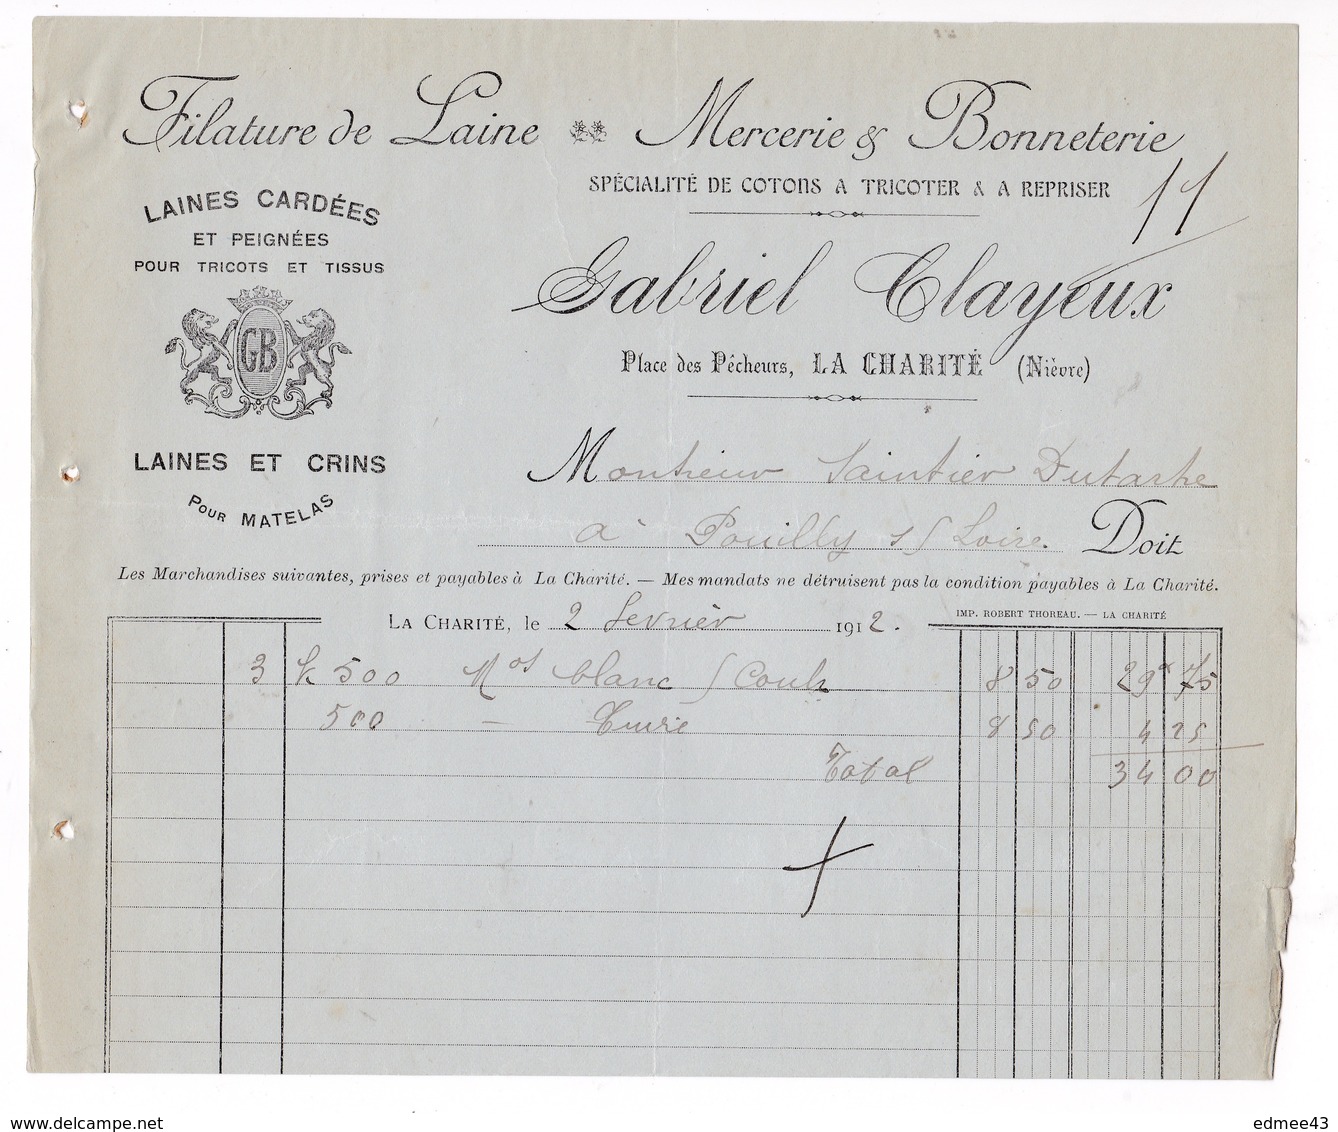 Filature de Laine Mercerie & Bonneterie
SPÉCIALITÉ DE COTONS A TRICOTER & A REPRISER
LAINES CARDÉES
ET PEIGNÉES
POUR TRICOTS ET TISSUS
GB
LAINES ET CRINS
POUR MATELAS
Gabriel Clayeux
Place des Pêcheurs, LA CHARITÉ (Nièvre)
Monsieur Saintier Dutarhe
à Pouilly s/ Loire. Doit
Les Marchandises suivantes, prises et payables à La Charité. — Mes mandats ne détruisent pas la condition payables à La Charité.
IMP. ROBERT THOREAU. — LA CHARITÉ
LA CHARITÉ, le 2 fevrier 1912.
3 k 500 Mos blanc / Coul 8 50 29 75
500 — 8 50 4 25
Total 34 00
www.delcampe.net
edmee43